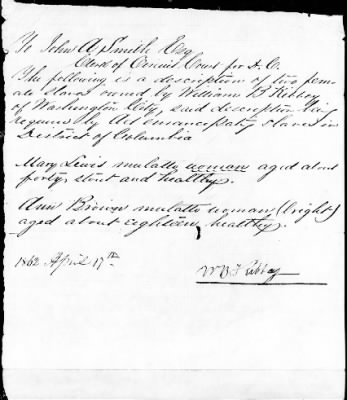 To John A. Smith Esq
Clerk of Circuit Court for D. C.
The following is a description of two fem-
ale slaves owned by William B Kibbey
of Washington City, said description being
required by Act emancipating slaves in
District of Columbia
Mary Lewis mulatto woman aged about
forty, stout and healthy.
Ann Brown mulatto woman (bright)
aged about eighteen, healthy.
1862 April 17th
W B Kibbey